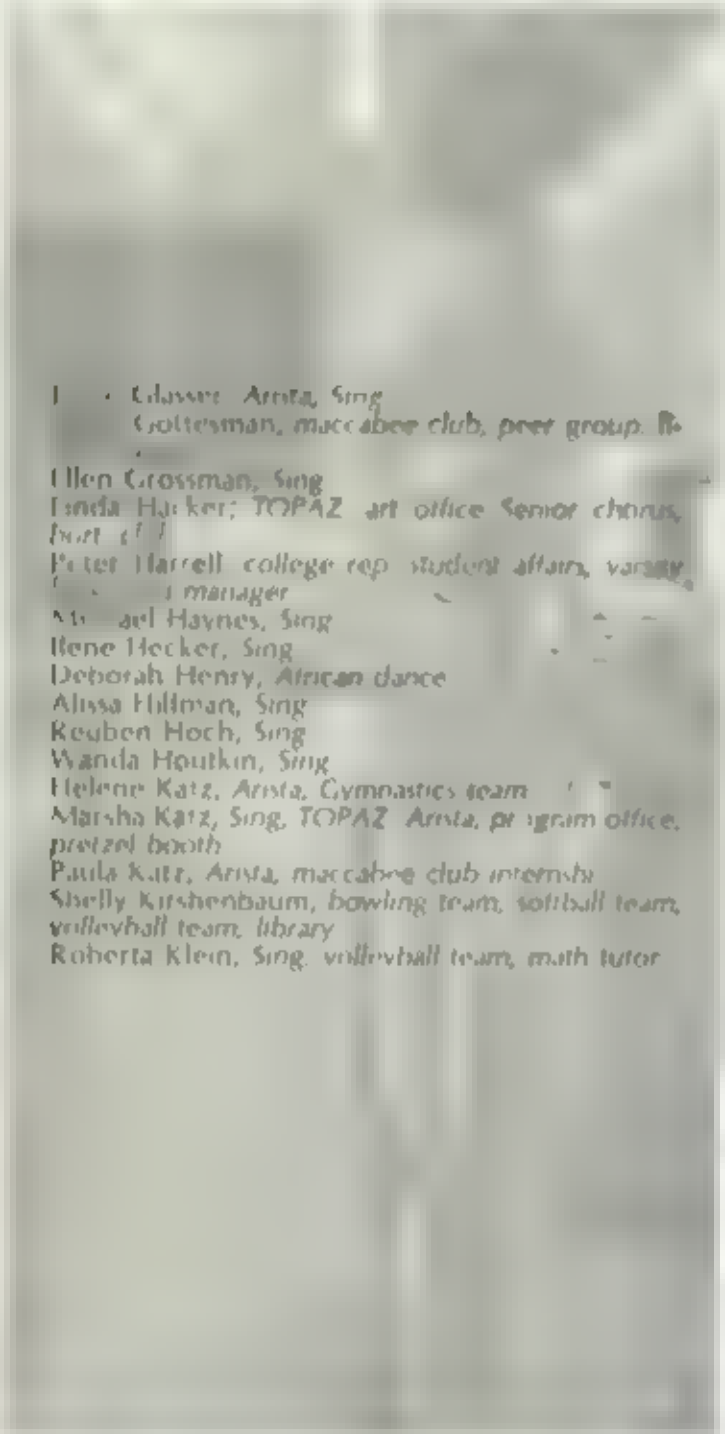 Glasser, Arista, Sing
Gottesman, maccabee club, peer group
Ellen Grossman, Sing
Linda Hacker; TOPAZ art office Senior chorus,
Peter Harrell college rep student affairs, varsity
manager
Michael Haynes, Sing
Ilene Hecker, Sing
Deborah Henry, African dance
Alissa Hillman, Sing
Reuben Hoch, Sing
Wanda Houtkin, Sing
Helene Katz, Arista, Gymnastics team
Marsha Katz, Sing, TOPAZ Arista, program office,
pretzel booth
Paula Katz, Arista, maccabee club
Shelly Kirshenbaum, bowling team, softball team,
volleyball team, library
Roberta Klein, Sing, volleyball team, math tutor